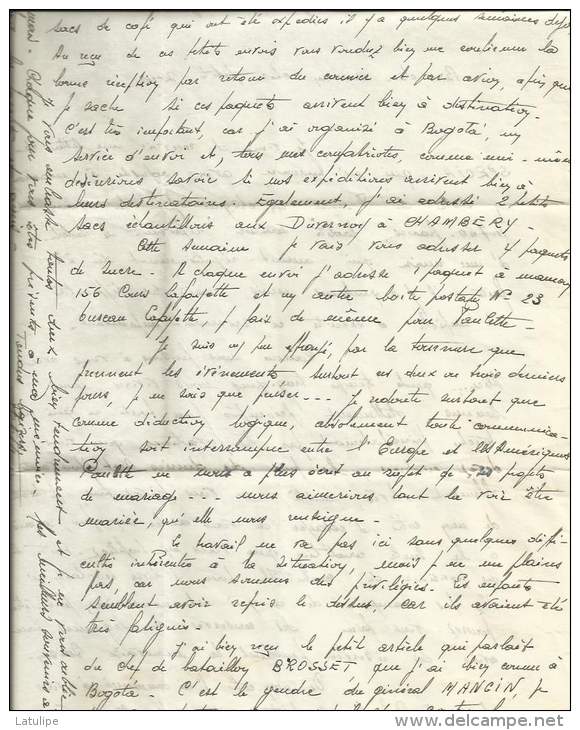 sacs de café qui ont été expédiés il y a quelques semaines déjà
Au reçu de ces petits envois vous voudrez bien me confirmer la
bonne réception par retour du courrier et par avion, afin que
je sache si ces paquets arrivent bien à destination -
C'est très important, car j'ai organisé à Bogotá, un
service d'envoi et, tous nos compatriotes, comme moi-même
désirerions savoir si nos expéditions arrivent bien à
leurs destinataires. Egalement, j'ai adressé 2 petits
sacs échantillons aux Duvernoy à CHAMBÉRY -
Cette semaine je vais vous adresser 4 paquets
de sucre. - A chaque envoi j'adresse 1 paquet à maman
156 Cours Lafayette et un autre boite postale No 23
bureau Lafayette, je fais de même pour Paulette -
Je suis un peu effrayé, par la tournure que
prennent les événements surtout ces deux ou trois derniers
jours, je ne sais que penser... Je redoute surtout que
comme déduction logique, absolument toute communica-
tion soit interrompue entre l'Europe et les Amériques
Paulette ne nous a plus écrit au sujet de ses projets
de mariage - - - nous aimerions tant la voir être
mariée, qu'elle nous renseigne -
Le travail ne va pas ici sans quelques diffi-
cultés inhérentes à la situation, mais je ne me plains
pas, car nous sommes des privilégiés. Les enfants
semblent avoir repris le dessus, car ils avaient été
très fatigués -
J'ai bien reçu le petit article qui parlait
du chef de bataillon BROSSET que j'ai bien connu à
Bogotá - C'est le gendre du général MANGIN, je
Je vous embrasse toutes deux bien tendrement et je ne vous oublie
pour vous être présents à ma mémoire - Les meilleurs souvenirs à
Tendres baisers,
Latulipe
www.delcampe.net